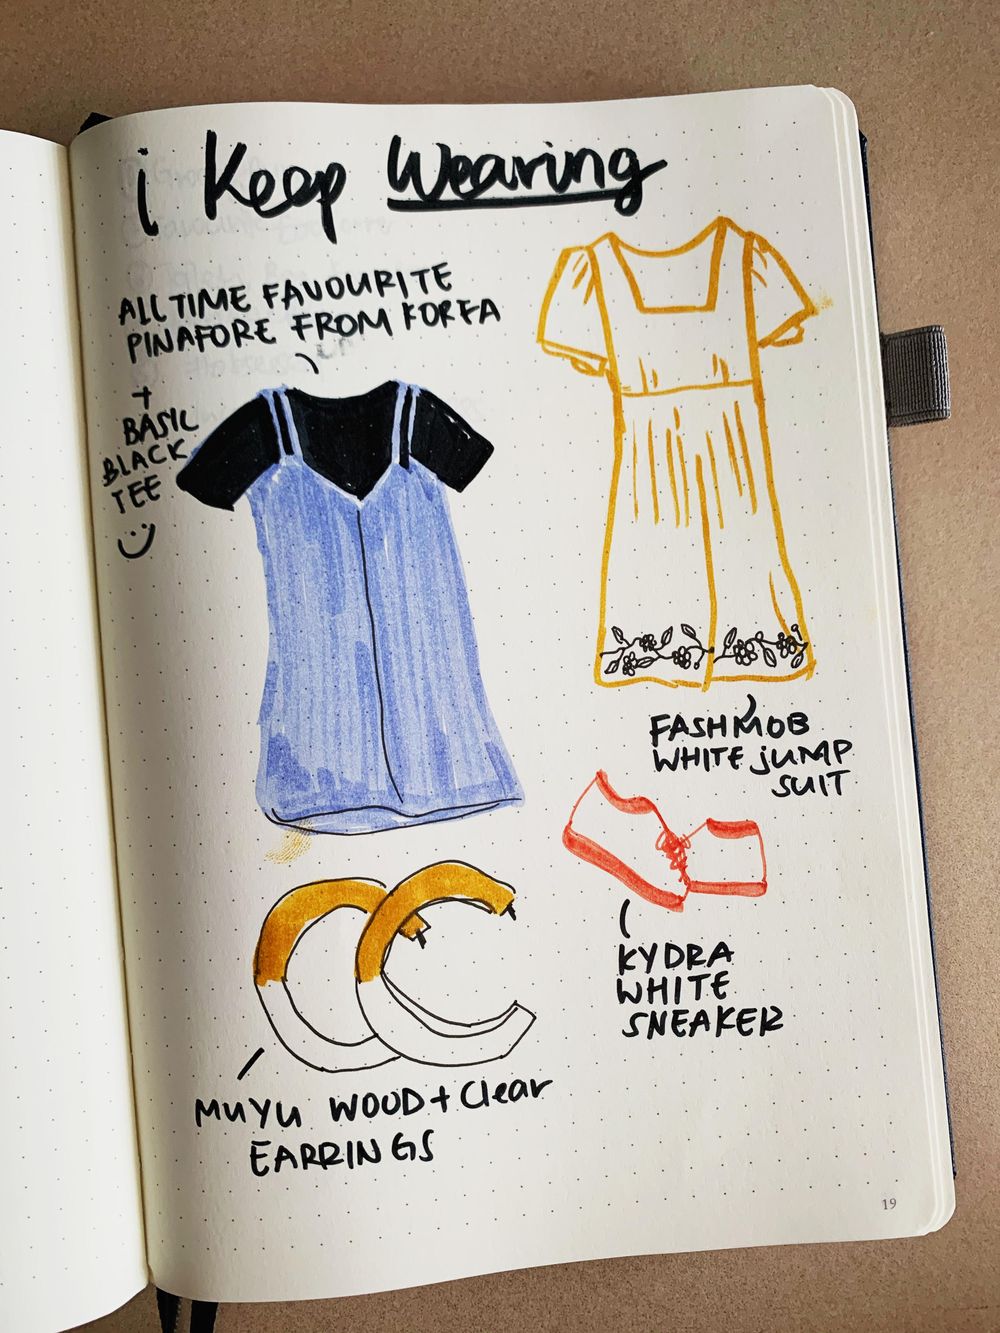 i Keep Wearing
ALL TIME FAVOURITE
PINAFORE FROM KOREA
+
BASIC
BLACK
TEE
FASHMOB
WHITE JUMP
SUIT
KYDRA
WHITE
SNEAKER
MUYU WOOD + Clear
EARRINGS
19